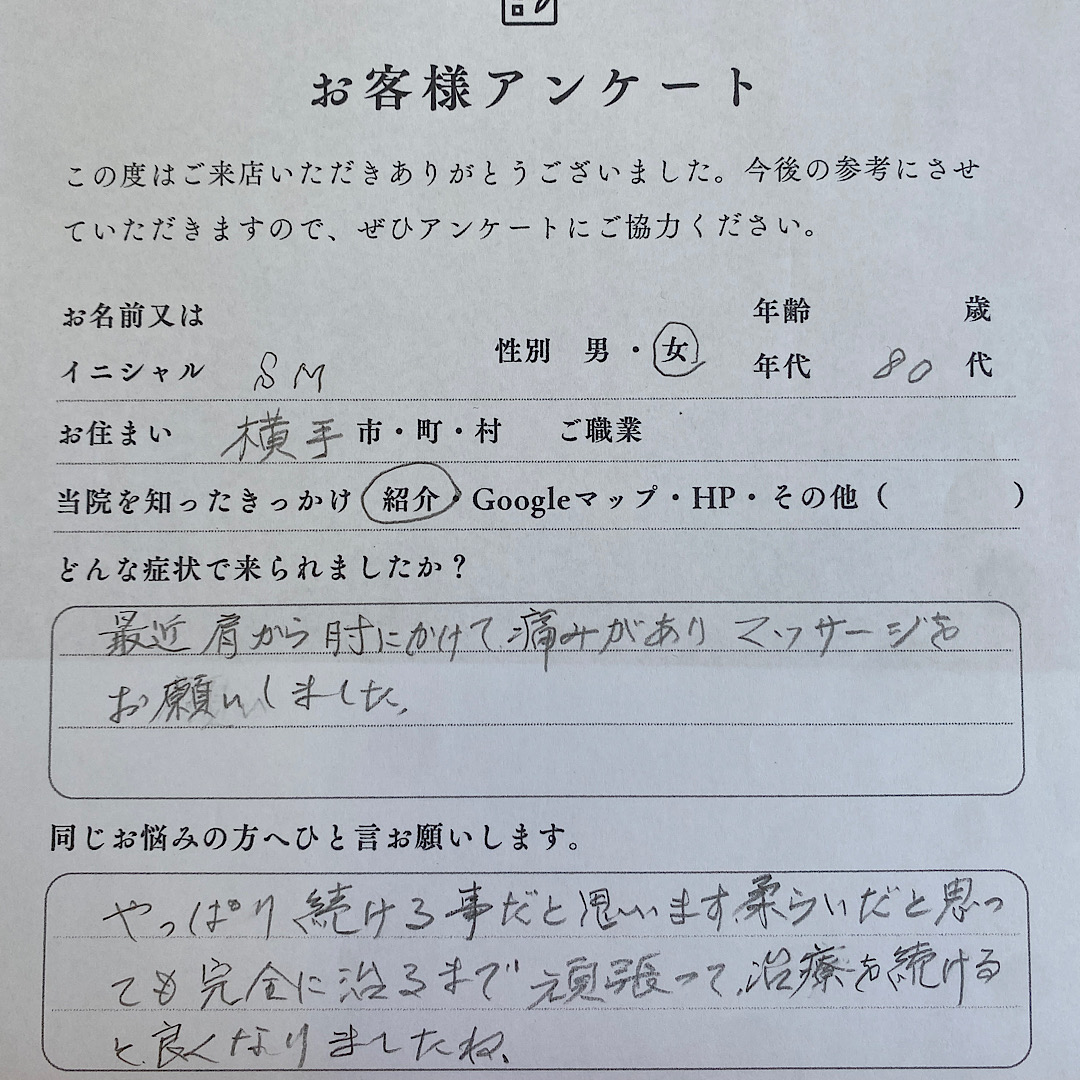 お客様アンケート
この度はご来店いただきありがとうございました。今後の参考にさせ
ていただきますので、ぜひアンケートにご協力ください。
お名前又は
イニシャル SM 性別 男・女 年齢 歳
年代 80 代
お住まい 横手 市・町・村 ご職業
当院を知ったきっかけ 紹介・Googleマップ・HP・その他（ ）
どんな症状で来られましたか？
最近肩から肘にかけて痛みがありマッサージを
お願いしました。
同じお悩みの方へひと言お願いします。
やっぱり続ける事だと思います柔らいだと思っ
ても完全に治るまで頑張って治療を続ける
と良くなりましたね、